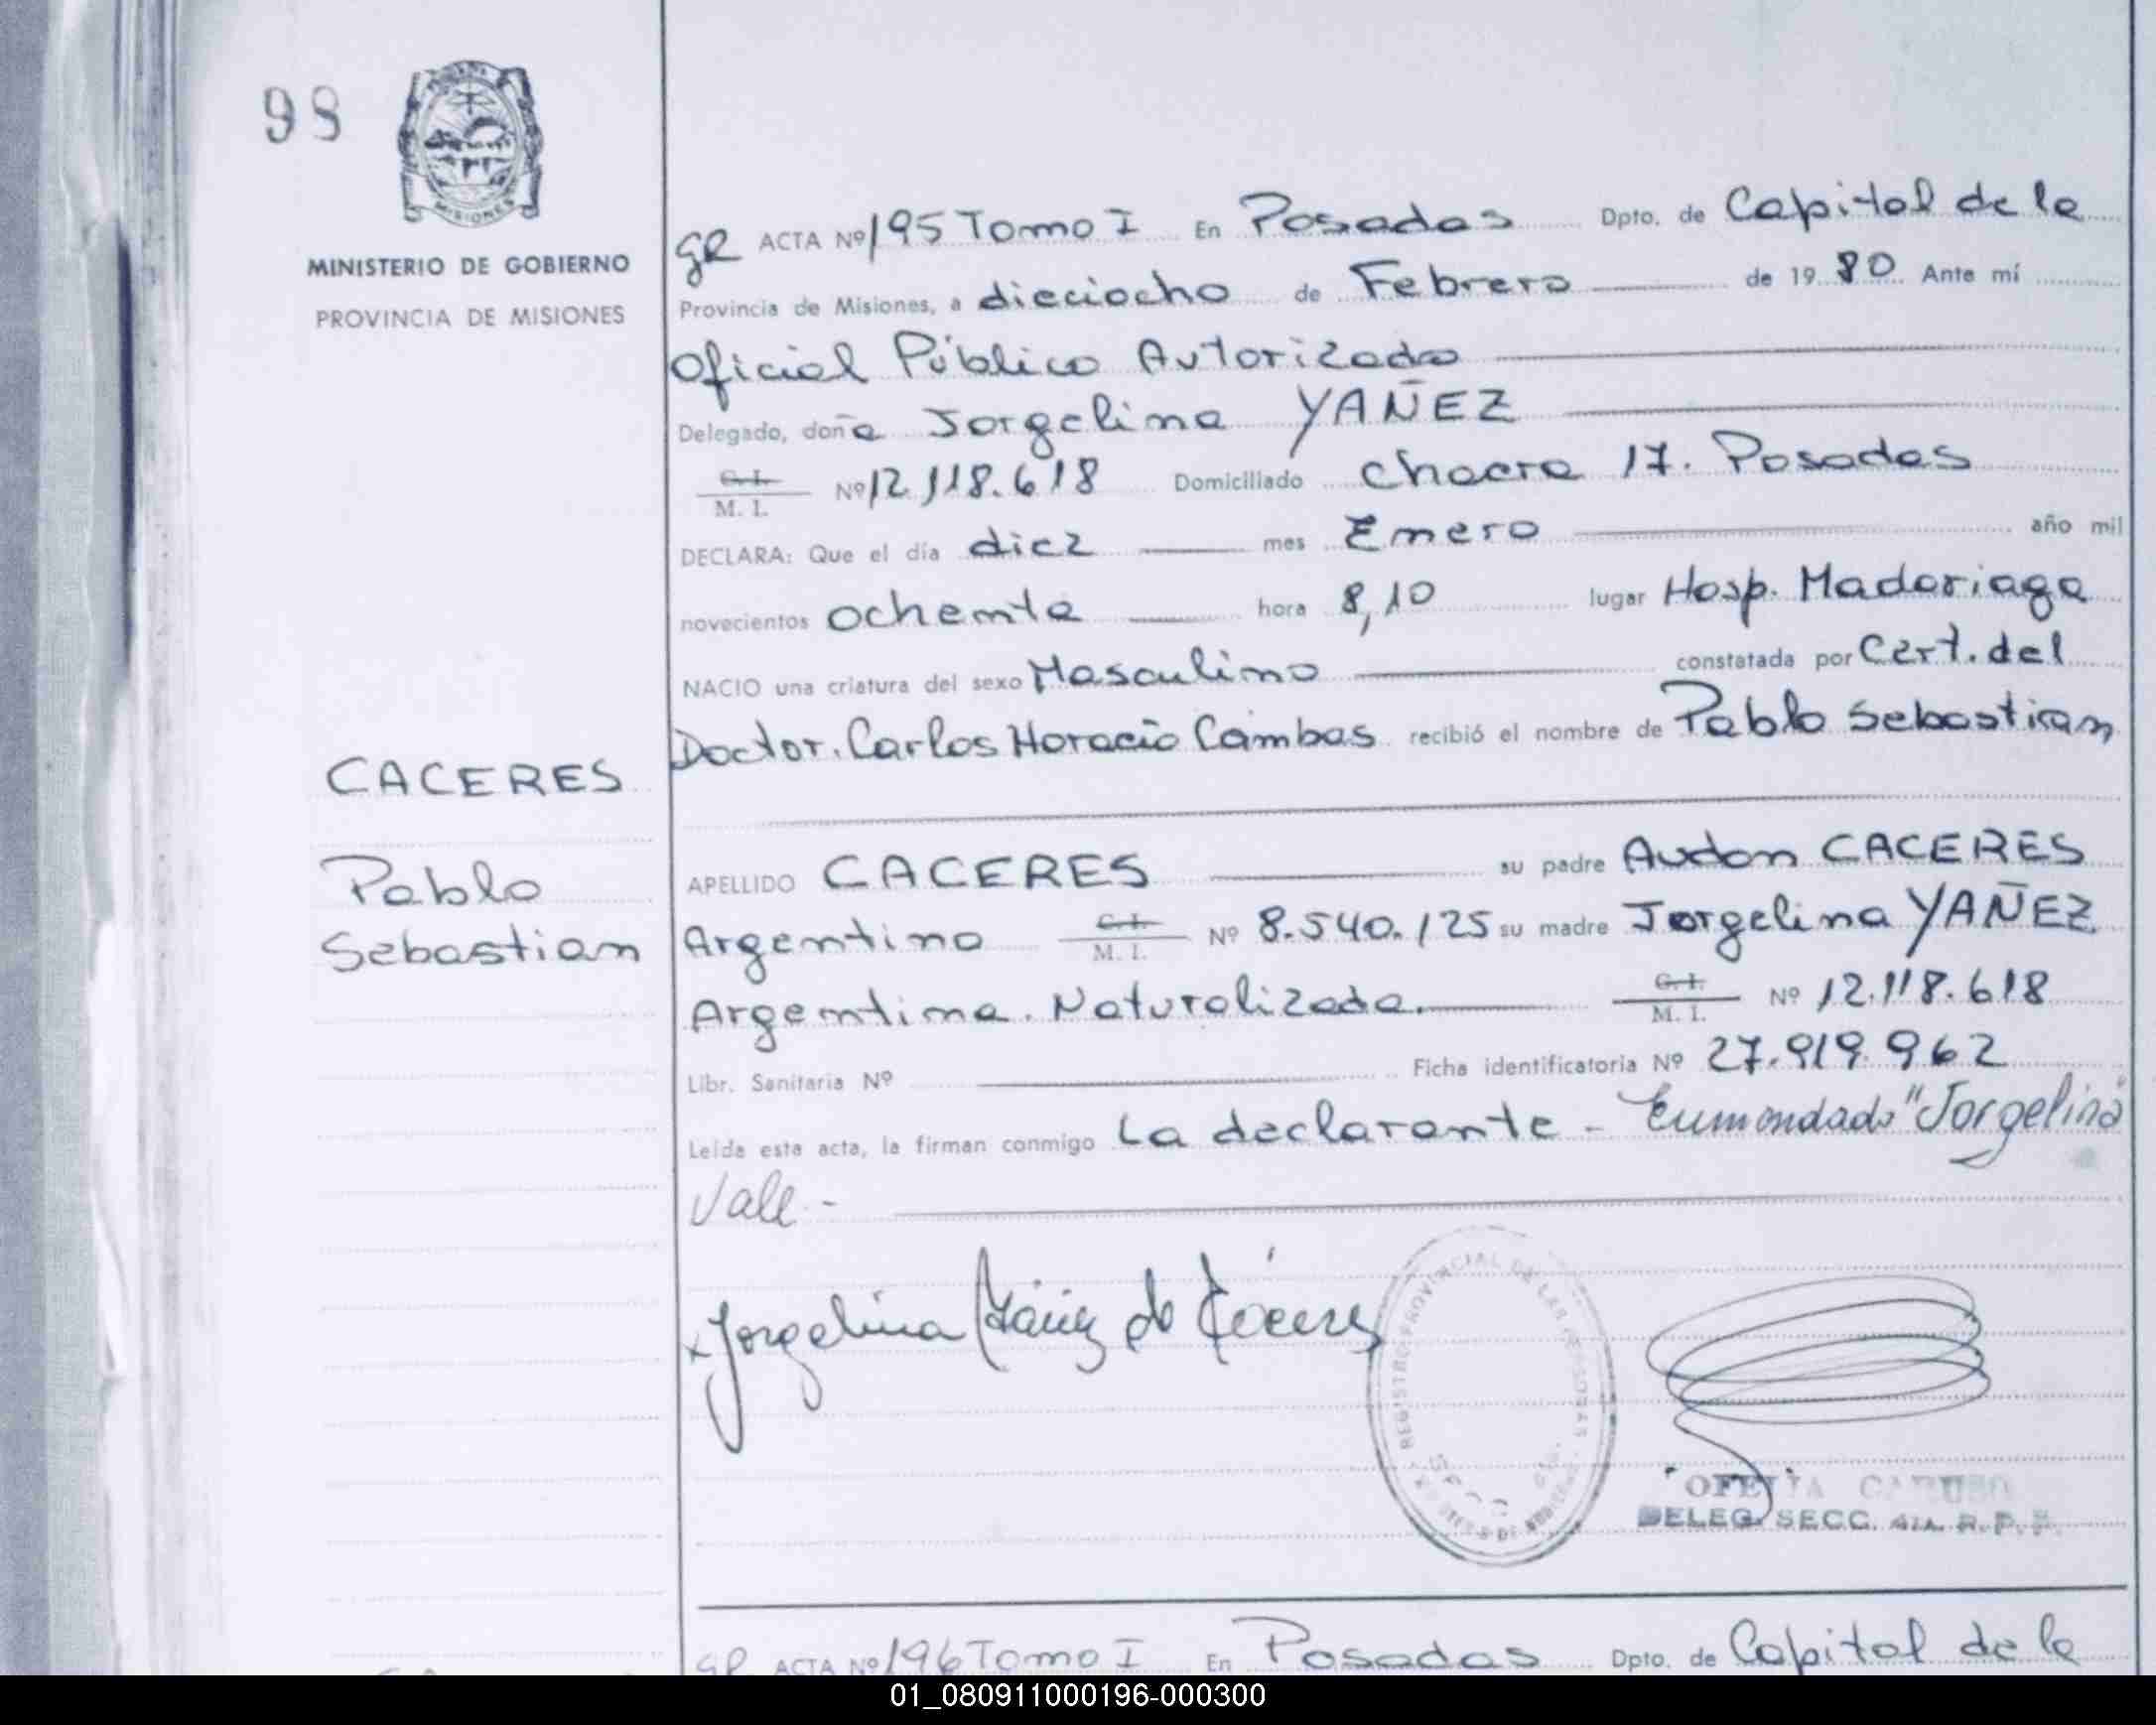 98
MISIONES
MINISTERIO DE GOBIERNO
PROVINCIA DE MISIONES
CACERES
Pablo
Sebastian
GR ACTA Nº 195 Tomo I En Posadas Dpto. de Capital de la
Provincia de Misiones, a dieciocho de Febrero de 19 80 Ante mí
Oficial Público Autorizado
Delegado, doña Jorgelina YAÑEZ
C. I. / M. I. Nº 12.118.618 Domiciliado Chacra 17. Posadas
DECLARA: Que el día diez mes Enero año mil
novecientos ochenta hora 8,10 lugar Hosp. Madariaga
NACIO una criatura del sexo Masculino constatada por Cert. del
Doctor. Carlos Horacio Cambas recibió el nombre de Pablo Sebastian
APELLIDO CACERES su padre Audon CACERES
Argentino C. I. / M. I. Nº 8.540.125 su madre Jorgelina YAÑEZ
Argentina. Naturalizada. C. I. / M. I. Nº 12.118.618
Libr. Sanitaria Nº Ficha identificatoria Nº 27.919.962
Leída esta acta, la firman conmigo La declarante - Enmendado "Jorgelina"
Vale -
x Jorgelina Yáñez de Cáceres
REGISTRO PROVINCIAL DE LAS PERSONAS
OFELIA CARUSO
DELEG. SECC. 4ta. R. P. P.
GR ACTA Nº 196 Tomo I En Posadas Dpto. de Capital de la
01_080911000196-000300